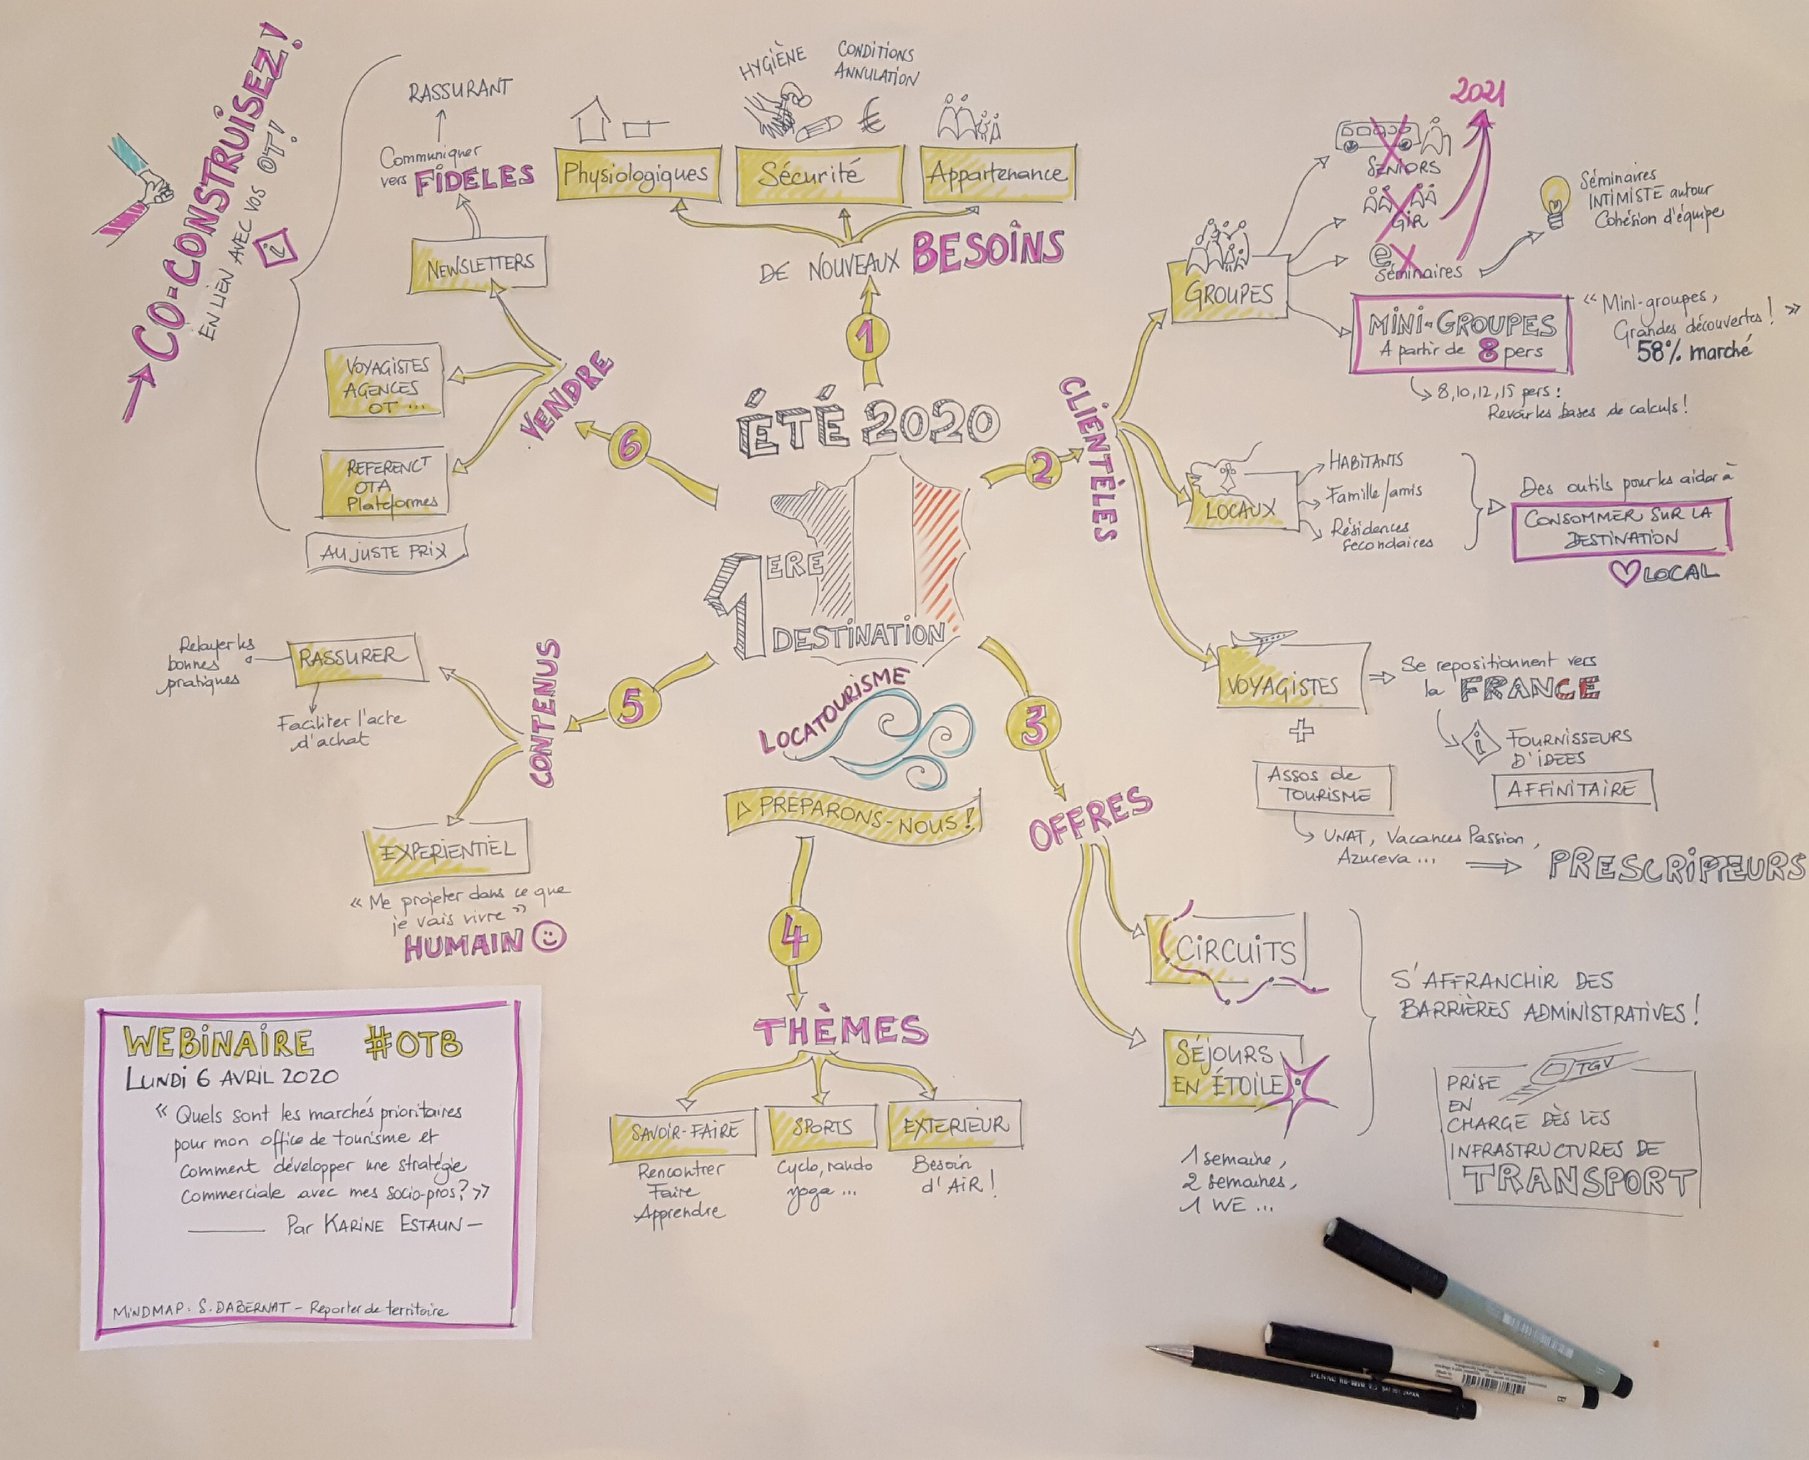 ÉTÉ 2020
1ERE
DESTINATION
LOCATOURISME
PREPARONS-NOUS !
1
DE NOUVEAUX BESOINS
Physiologiques
HYGIÈNE
CONDITIONS
ANNULATION
€
Sécurité
Appartenance
2
CLIENTÈLES
GROUPES
2021
SENIORS
GIR
Séminaires
Séminaires
INTIMISTE autour
Cohésion d'équipe
MINI-GROUPES
A partir de 8 pers
« Mini-groupes,
Grandes découvertes ! »
58% marché
8, 10, 12, 15 pers :
Revoir les bases de calculs !
LOCAUX
HABITANTS
Famille/amis
Résidences
secondaires
Des outils pour les aider à
CONSOMMER SUR LA
DESTINATION
LOCAL
VOYAGISTES
Se repositionnent vers
la FRANCE
i
FOURNISSEURS
D'IDEES
AFFINITAIRE
+
ASSOS de
TOURISME
UNAT, Vacances Passion,
Azureva ...
PRESCRIPTEURS
3
OFFRES
CIRCUITS
SÉJOURS
EN ÉTOILE
1 semaine,
2 semaines,
1 WE ...
S'AFFRANCHIR DES
BARRIÈRES ADMINISTRATIVES !
TGV
PRISE
EN
CHARGE DÈS LES
INFRASTRUCTURES DE
TRANSPORT
4
THÈMES
SAVOIR-FAIRE
Rencontrer
Faire
Apprendre
SPORTS
Cyclo, rando
yoga ...
EXTERIEUR
Besoin
d'AIR !
5
CONTENUS
RASSURER
Relayer les
bonnes
pratiques
Faciliter l'acte
d'achat
EXPERIENTIEL
« Me projeter dans ce que
je vais vivre »
HUMAIN
6
VENDRE
NEWSLETTERS
Communiquer
vers FIDÈLES
RASSURANT
VOYAGISTES
AGENCES
OT ...
REFERENCT
OTA
Plateformes
AU JUSTE PRIX
CO-CONSTRUISEZ !
EN LIEN AVEC VOS OT !
i
WEBINAIRE #OTB
LUNDI 6 AVRIL 2020
« Quels sont les marchés prioritaires
pour mon office de tourisme et
comment développer une stratégie
commerciale avec mes socio-pros? »
Par KARINE ESTAUN –
MINDMAP : S. DABERNAT – Reporter de territoire